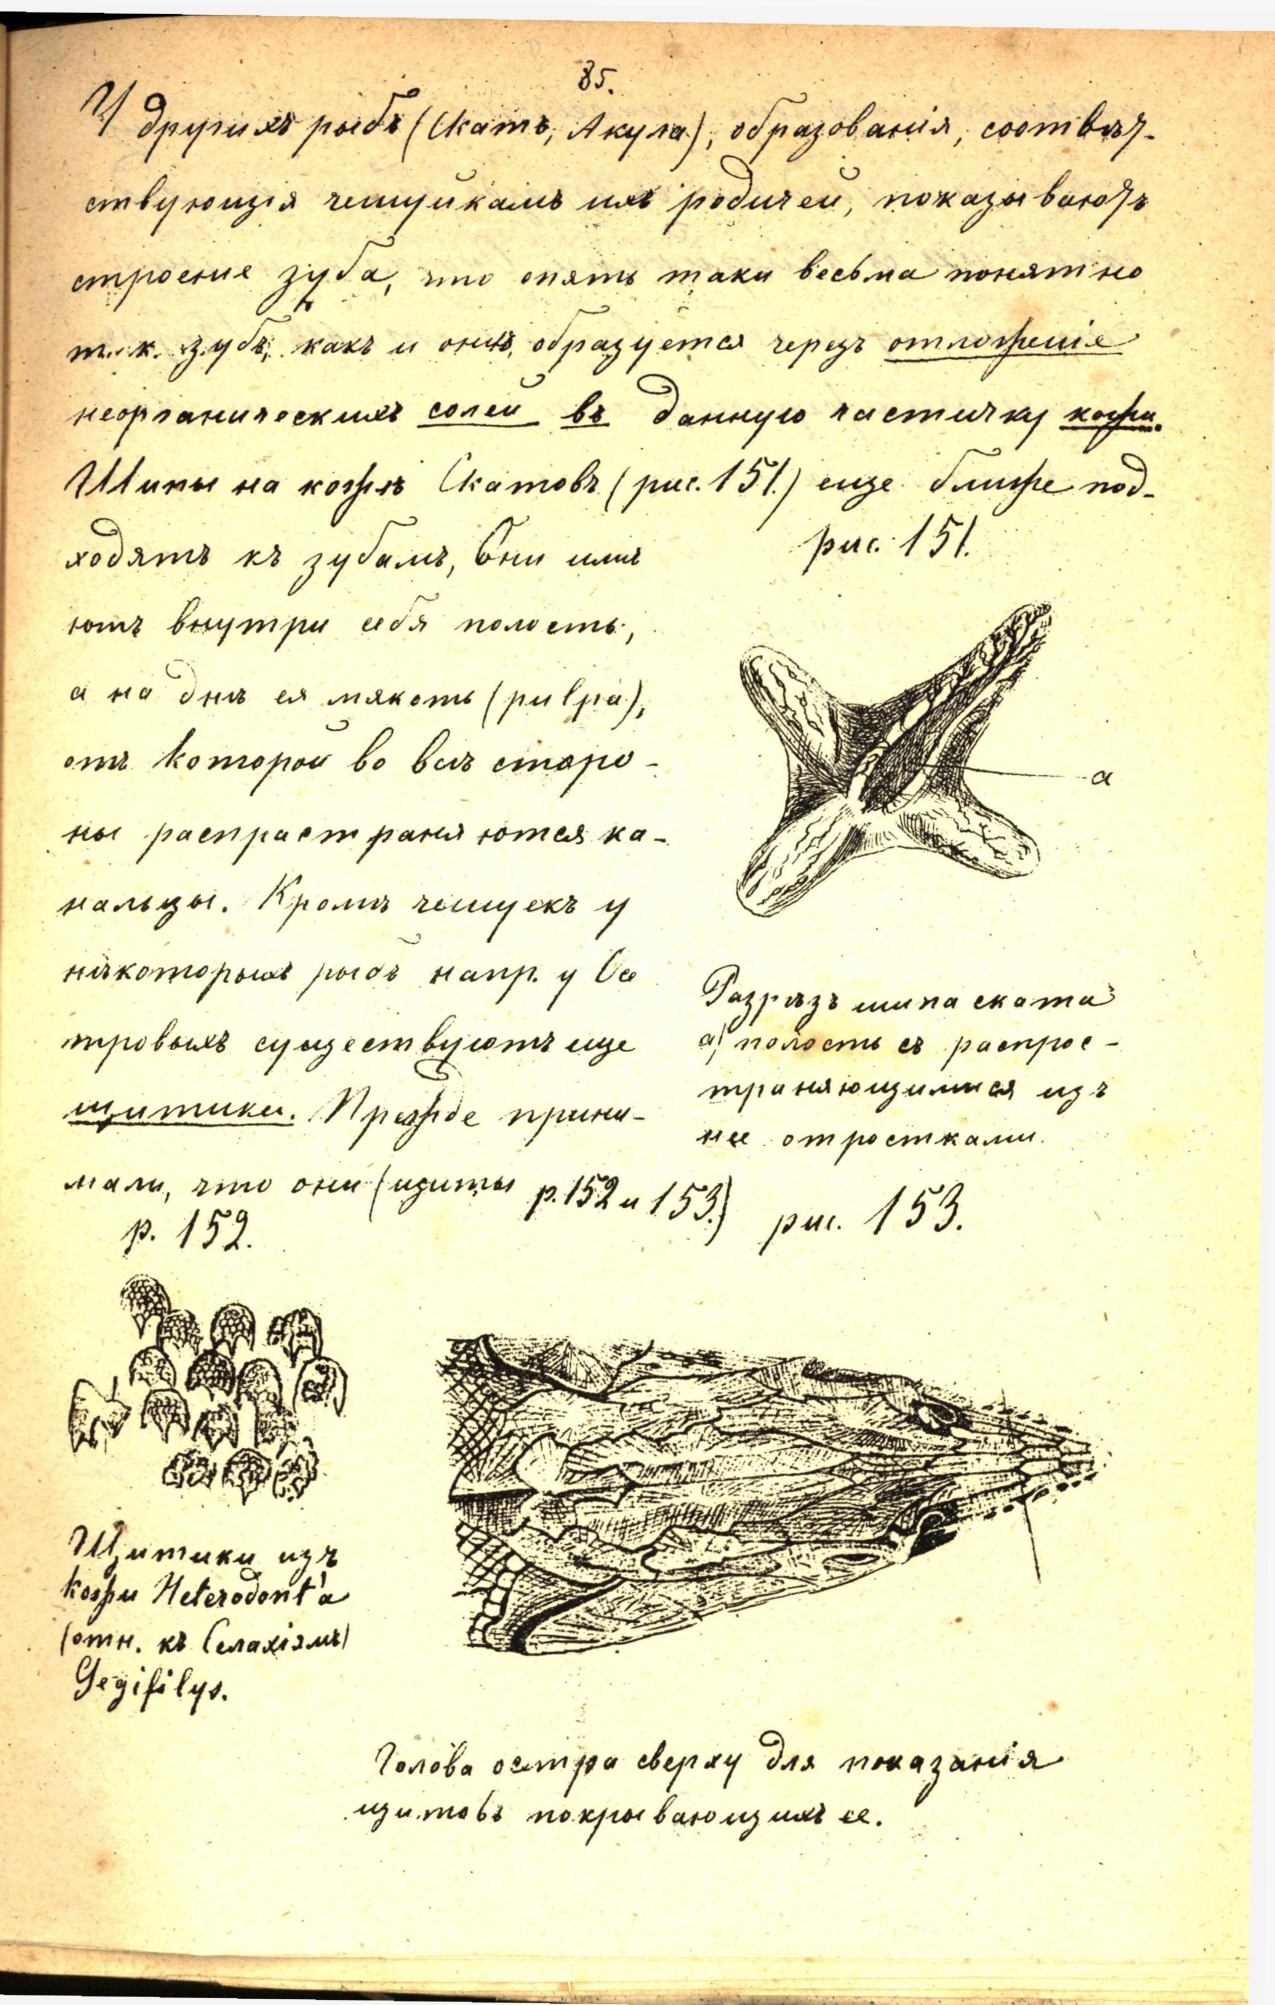 85.
У другихъ рыбъ (Скатъ, Акула), образованія, соотвѣт-
ствующія чешуйкамъ ихъ родичей, показываютъ
строеніе зуба, что опять таки весьма понятно
т. к. зубъ, какъ и они, образуется черезъ отложеніе
неорганическихъ солей въ данную частичку кожи.
Шипы на кожѣ Скатовъ (рис. 151.) еще ближе под-
ходятъ къ зубамъ, Они имѣ
ютъ внутри себя полость,
а на днѣ ея мякоть (pulpa),
отъ которой во всѣ сторо-
ны распрастраняются ка-
нальцы. Кромѣ чешуекъ у
нѣкоторыхъ рыбъ напр. у Осе
тровыхъ существуютъ еще
щитики. Прежде прини-
мали, что они (щиты р. 152 и 153.)
рис. 151.
а
Разрѣзъ шипа ската
а) полость съ распрос-
траняющимися изъ
нее отростками.
р. 152.
Щитики изъ
кожи Heterodont'а
(отн. къ Селахіямъ)
рис. 153.
Голова осетра сверху для показанія
щитовъ покрывающихъ ее.